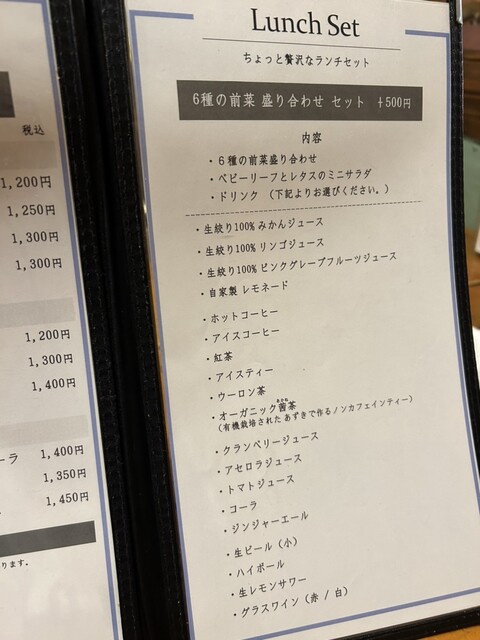 税込
1,200円
1,250円
1,300円
1,300円
1,200円
1,300円
1,400円
ーラ 1,400円
1,350円
1,450円
ります。
Lunch Set
ちょっと贅沢なランチセット
6種の前菜 盛り合わせ セット +500円
内容
・6種の前菜盛り合わせ
・ベビーリーフとレタスのミニサラダ
・ドリンク (下記よりお選びください。)
・生絞り100% みかんジュース
・生絞り100% リンゴジュース
・生絞り100% ピンクグレープフルーツジュース
・自家製 レモネード
・ホットコーヒー
・アイスコーヒー
・紅茶
・アイスティー
・ウーロン茶
・オーガニック茜茶
(有機栽培された あずきで作るノンカフェインティー)
・クランベリージュース
・アセロラジュース
・トマトジュース
・コーラ
・ジンジャーエール
・生ビール (小)
・ハイボール
・生レモンサワー
・グラスワイン (赤 / 白)